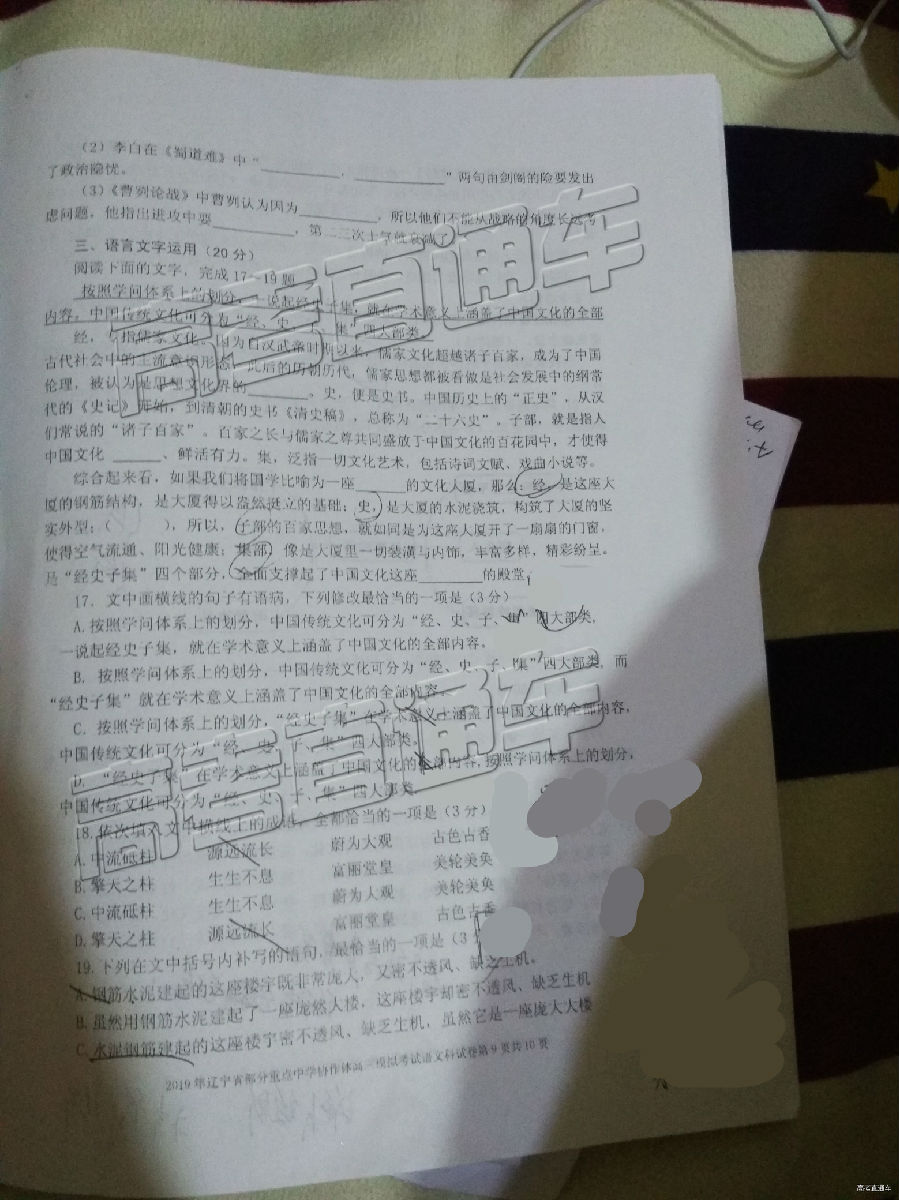 （2）李白在《蜀道难》中“____________，____________”两句由剑阁的险要发出
了政治隐忧。
（3）《曹刿论战》中曹刿认为因为____________，所以他们不能从战略的角度长远考
虑问题，他指出进攻中要____________，第二三次士气就衰减了
三、语言文字运用（20分）
阅读下面的文字，完成17～19题
按照学问体系上的划分，一说起经史子集，就在学术意义上涵盖了中国文化的全部
内容。中国传统文化可分为“经、史、子、集”四大部类
经，专指儒家文化。因为自汉武帝时期以来，儒家文化超越诸子百家，成为了中国
古代社会中的主流意识形态，此后的历朝历代，儒家思想都被看做是社会发展中的纲常
伦理，被认为是思想文化界的________。史，便是史书。中国历史上的“正史”，从汉
代的《史记》开始，到清朝的史书《清史稿》，总称为“二十六史”。子部，就是指人
们常说的“诸子百家”。百家之长与儒家之尊共同盛放于中国文化的百花园中，才使得
中国文化 ______、鲜活有力。集，泛指一切文化艺术，包括诗词文赋、戏曲小说等。
综合起来看，如果我们将国学比喻为一座______的文化大厦，那么：经，是这座大
厦的钢筋结构，是大厦得以盎然挺立的基础；史，是大厦的水泥浇筑，构筑了大厦的坚
实外型；（　　　），所以，子部的百家思想，就如同是为这座大厦开了一扇扇的门窗，
使得空气流通、阳光健康；集部，像是大厦里一切装潢与内饰，丰富多样，精彩纷呈。
是“经史子集”四个部分，全面支撑起了中国文化这座________的殿堂。
17. 文中画横线的句子有语病，下列修改最恰当的一项是（3分）
A. 按照学问体系上的划分，中国传统文化可分为“经、史、子、集”四大部类，
一说起经史子集，就在学术意义上涵盖了中国文化的全部内容。
B. 按照学问体系上的划分，中国传统文化可分为“经、史、子、集”四大部类，而
“经史子集”就在学术意义上涵盖了中国文化的全部内容。
C. 按照学问体系上的划分，“经史子集”在学术意义上涵盖了中国文化的全部内容，
中国传统文化可分为“经、史、子、集”四大部类。
D. “经史子集”在学术意义上涵盖了中国文化的全部内容，按照学问体系上的划分，
中国传统文化可分为“经、史、子、集”四大部类
18. 依次填入文中横线上的成语，全都恰当的一项是（3分）
A. 中流砥柱　源远流长　蔚为大观　古色古香
B. 擎天之柱　生生不息　富丽堂皇　美轮美奂
C. 中流砥柱　生生不息　蔚为大观　美轮美奂
D. 擎天之柱　源远流长　富丽堂皇　古色古香
19. 下列在文中括号内补写的语句，最恰当的一项是（3分
A. 钢筋水泥建起的这座楼宇既非常庞大，又密不透风、缺乏生机。
B. 虽然用钢筋水泥建起了一座庞然大楼，这座楼宇却密不透风、缺乏生机
C. 水泥钢筋建起的这座楼宇密不透风、缺乏生机，虽然它是一座庞大大楼
2019年辽宁省部分重点中学协作体高三模拟考试语文科试卷第9页共10页
高考直通车
高考直通车
高考直通车